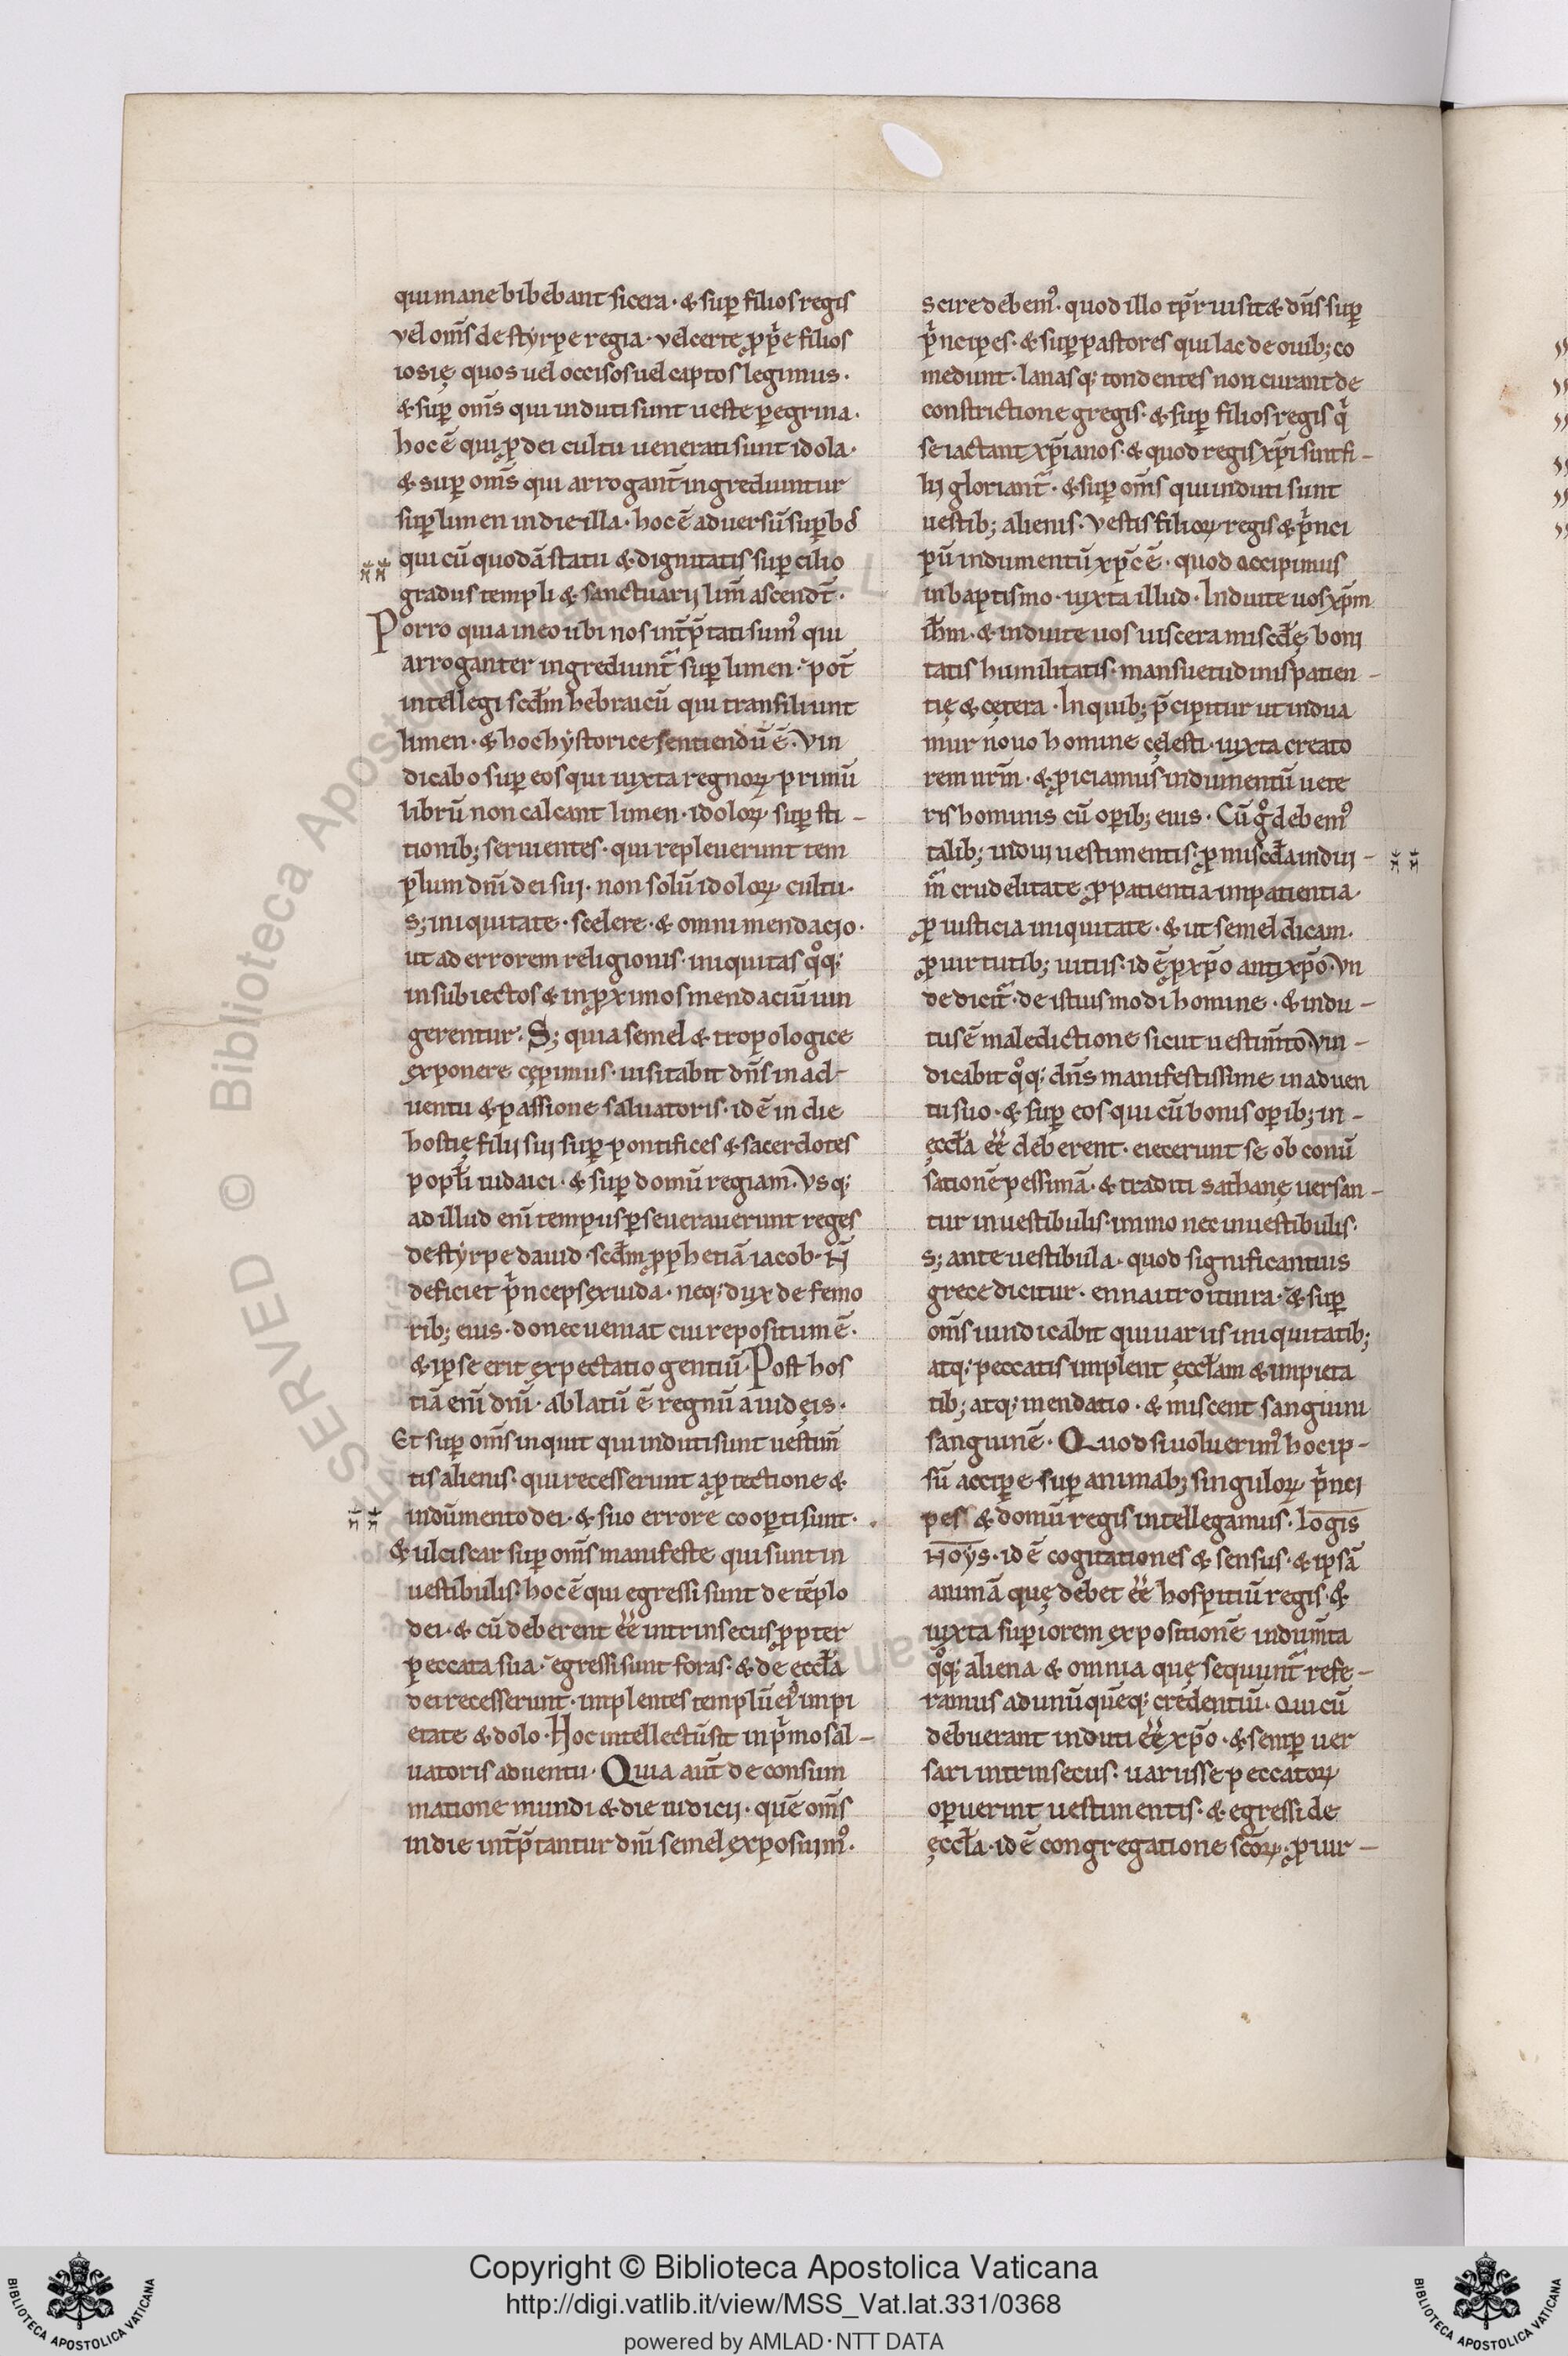 qui mane bibebant sicera · & sup̲ filios regis
vel om̄s de styrpe regia · vel certe ꝓpͥe filios
iosię quos uel occisos uel captos legimus ·
& suꝑ om̄s qui induti sunt ueste ꝑegrina ·
hoc ē qui ꝓ dei cultu uenerati sunt idola ·
& suꝑ om̄s qui arrogant̄ ingrediuntur
suꝑ limen in die illa · hoc ē adversū suꝑbos
qui cū quodā statu & dignitatis suꝑcilio
gradus templi & sanctuarij lim̄ ascendt̄ ·
Porro quia in eo ubi nos int̄p̄tati sumꝰ qui
arroganter ingrediunt̄ suꝑ limen · pot̄
intellegi scd̄m hebraicū qui transiliunt
limen · & hoc hystorice sentiendū ē · Vin
dicabo suꝑ eos qui iuxta regnoꝝ primū
librū non calcant limen · idoloꝝ suꝑsti-
tionib; seruientes · qui repleuerunt tem
plum dn̄i dei sui · non solū idoloꝝ cultu ·
s; iniquitate · scelere · & omni mendacio ·
ut ad errorem religionis · iniquitas qͦq;
in subiectos & in ꝓximos mendaciū iun
gerentur · S; quia semel & tropologice
exponere cępimus · uisitabit dn̄s in ad-
uentu & passione saluatoris · id ē in die
hostię filij sui suꝑ pontifices & sacerdotes
popl̄i iudaici · & suꝑ domū regiam · Vsq;
ad illud eni̅ tempus ꝑseuerauerunt reges
de styrpe dauid · scd̄m ꝓphetiā iacob · N̄
deficiet pͥnceps ex iuda · neq; dux de femo
rib; eius · donec ueniat cui repositum ē ·
& ipse erit expectatio gentiū · Post hos
tiā eni̅ dn̄i · ablatū ē regnū a iudęis ·
Et suꝑ om̄s inquit qui induti sunt uestim̄
tis alienis · qui recesserunt a ꝓtectione &
indumento dei · & suo errore cooꝑti sunt ·
& ulciscar suꝑ om̄s manifeste qui sunt in
uestibulis · hoc ē qui egressi sunt de tēplo
dei · & cū deberent ēē intrinsecus ꝓpter
peccata sua · egressi sunt foras · & de ęccl̄a
dei recesserunt · implentes templū eiꝰ impi
etate & dolo · Hoc intellectū sit in pͥmo sal-
uatoris aduentu · Quia aut̄ de consum
matione mundi & die iudicij · quē om̄s
in die int̄p̄tantur dn̄i semel exposuimꝰ ·
scire debemꝰ · quod illo tp̄r uisit& dn̄s suꝑ
pͥncipes · & suꝑ pastores qui lac de ouib; co
medunt · lanasq; tondentes non curant de
constrictione gregis · & suꝑ filios regis qͥ
se iactant xp̄ianos · & quod regis xp̄i sint fi-
lij gloriant̄ · & suꝑ om̄s qui induti sunt
uestib; alienis · Vestis filioꝝ regis & pͥnci
pū indumentū xp̄c ē · quod accipimus
in baptismo · iuxta illud · Induite uos xp̄m
ih̄m · & induite uos uiscera miscd̄ę boni
tatis humilitatis · mansuetudinis patien-
tię & cętera · In quib; p̄cipitur ut indua
mur nouo homine cęlesti · iuxta creato
rem nrm̄ · & ꝓiciamus indumentū uete
ris hominis cū oꝑib; eius · Cū gͦ debemꝰ
talib; indui uestimentis · ꝓ miscd̄a indui-
m̄ crudelitate · ꝓ patientia inpatientia ·
ꝓ iusticia iniquitate · & ut semel dicam ·
ꝓ uirtutib; uitiis · id ē ꝓ xp̄o antixp̄o · Vn
de dicit̄ · de istiusmodi homine · & indu-
tus ē maledictione sicut uestim̄to · Vin-
dicabit qͦq; dn̄s manifestissime in aduen
tu suo · & suꝑ eos qui cū bonis oꝑib; in-
ęccl̄a ēē deberent · eiecerunt se ob conū
sationē pessimā · & traditi sathanę uersan-
tur in uestibulis · immo nec in uestibulis ·
s; ante uestibula · quod significantius
grece dicitur · ennaitroituira · & suꝑ
om̄s uindicabit qui uariis iniquitatib;
atq; peccatis implent ęccl̄am & impieta
tib; atq; mendatio · & miscent sanguini
sanguinē · Quod si uoluerimꝰ hoc ip-
sū acciꝑe suꝑ animab; singuloꝝ pͥnci
pes & domū regis intellegamus · logis
noys · id ē cogitationes & sensus · & ipsā
animā quę debet ēē hospitiū regis · &
iuxta suꝑiorem expositionē indum̄ta
qͦq; aliena & omnia quę sequunt̄ refe-
ramus ad unū quēq; credentiū · Qui cū
debuerant induti ēē xp̄o · & semꝑ uer
sari intrinsecus · uariis se peccatoꝝ
oꝑuerint uestimentis · & egressi de
ęccl̄a · id ē congregatione sc̄oꝝ · ꝓ uir-
Copyright © Biblioteca Apostolica Vaticana
http://digi.vatlib.it/view/MSS_Vat.lat.331/0368
powered by AMLAD·NTT DATA